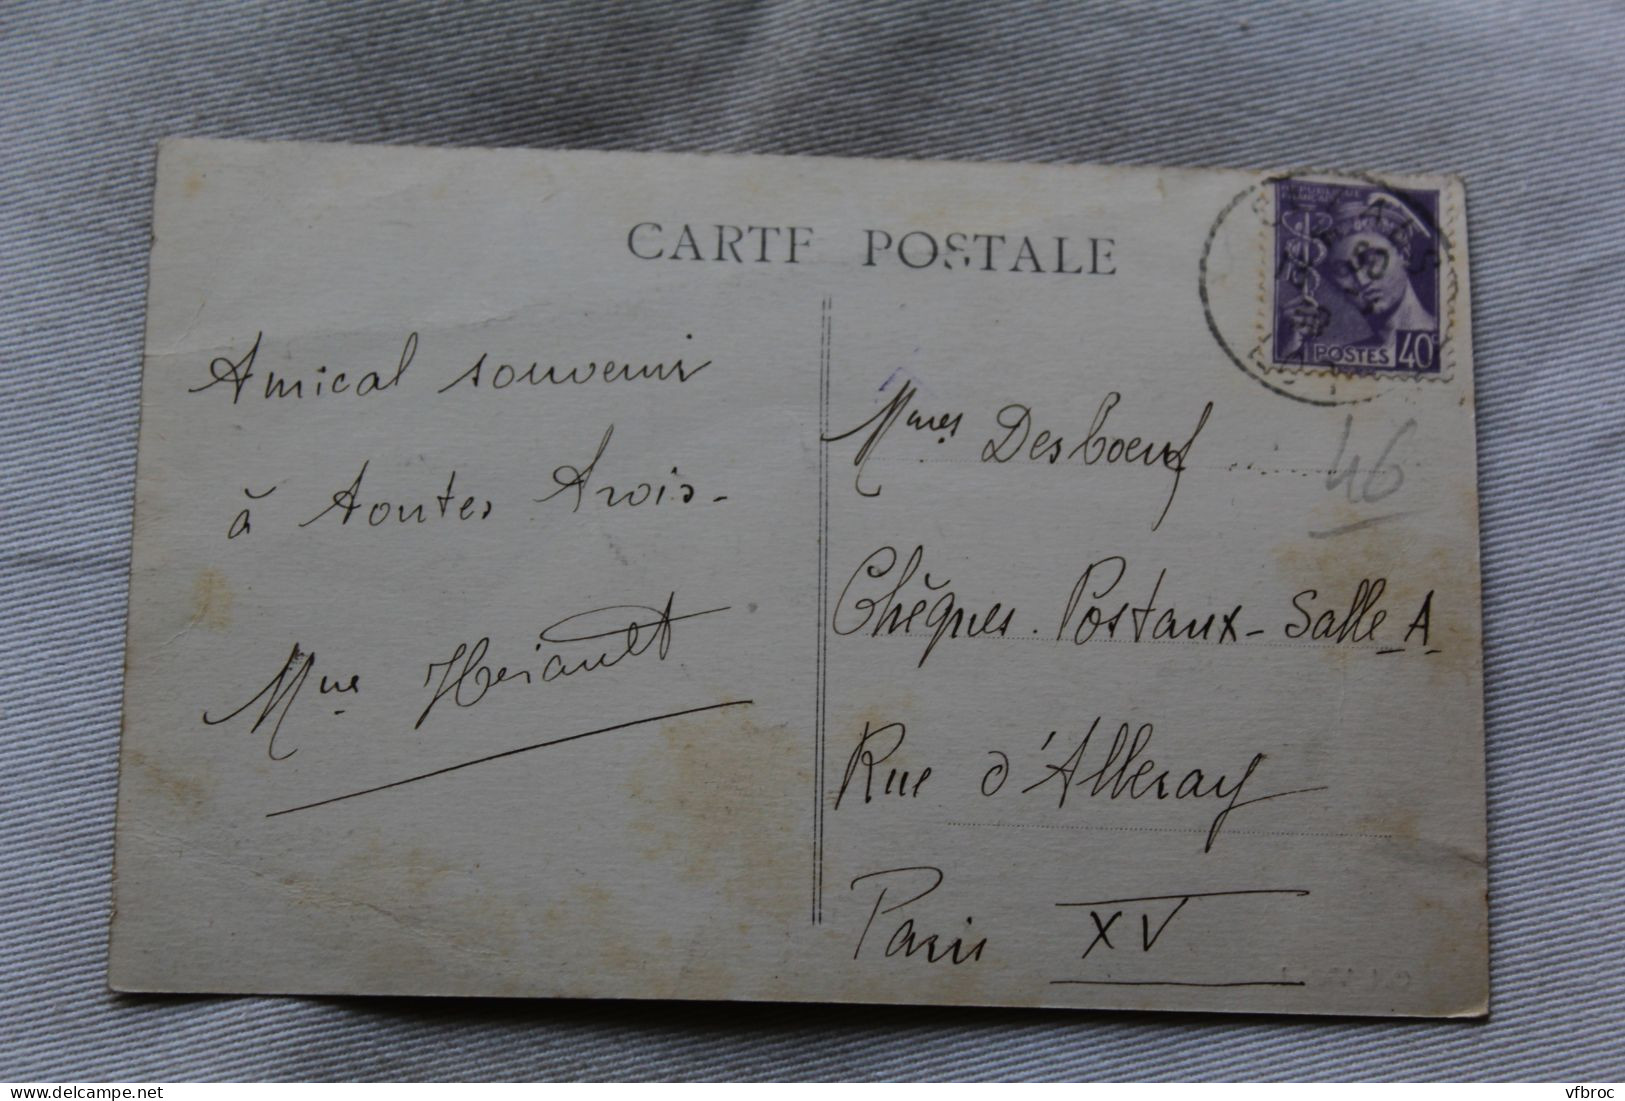 CARTE POSTALE
RÉPUBLIQUE
FRANÇAISE
POSTES 40c
Amical souvenir
à toutes trois -
Mme Heriault
Mmes Desboeuf
46
Chèques Postaux - Salle A
Rue d'Alleray
Paris XV
delcampe.net
vfbroc